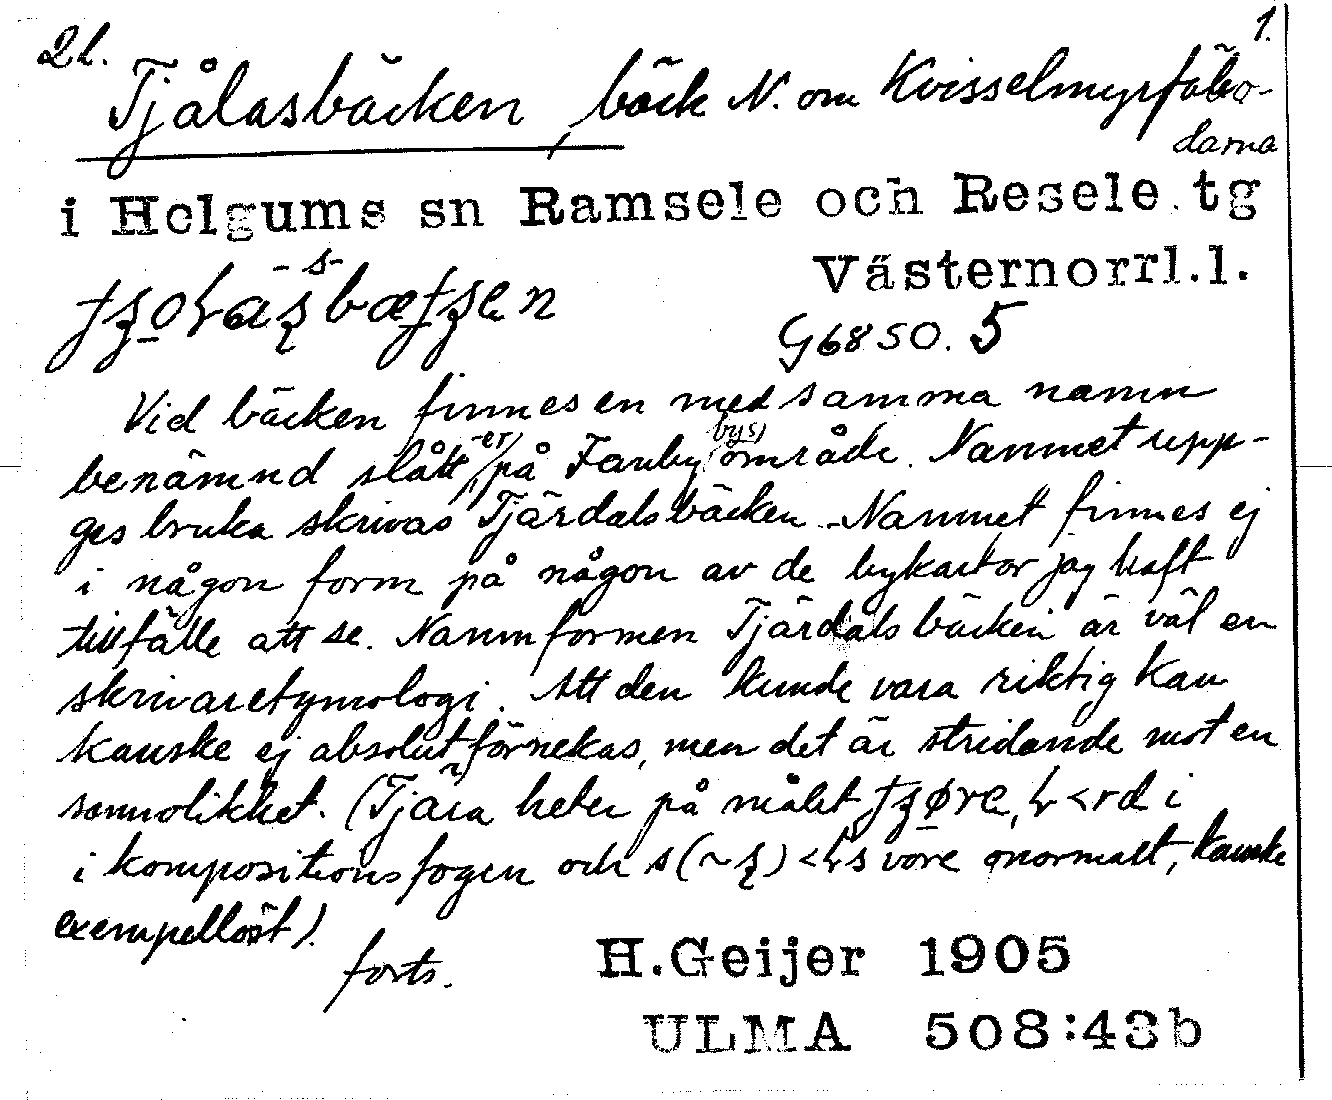 2l. 1.
Tjålasbäcken, bäck N. om Kvisselmyrfäbo-
darna
i Helgums sn Ramsele och Resele tg
Västernorrl.l.
-s-
G6850. 5
Vid bäcken finnes en med samma namn
benämnd slått-er, på Fanby bys) område. Namnet upp-
ges bruka skrivas Tjärdalsbäcken. Namnet finnes ej
i någon form på någon av de bykartor jag haft
tillfälle att se. Namnformen Tjärdalsbäcken är väl en
skrivaretymologi. Att den kunde vara riktig kan
kanske ej absolut förnekas, men det är stridande mot en
sannolikhet. (Tjära heter på målet < rd i
i kompositionsfogen och s (~ ) < s vore onormalt, kanske
exempellöst).
forts.
H.Geijer 1905
ULMA 508:43b